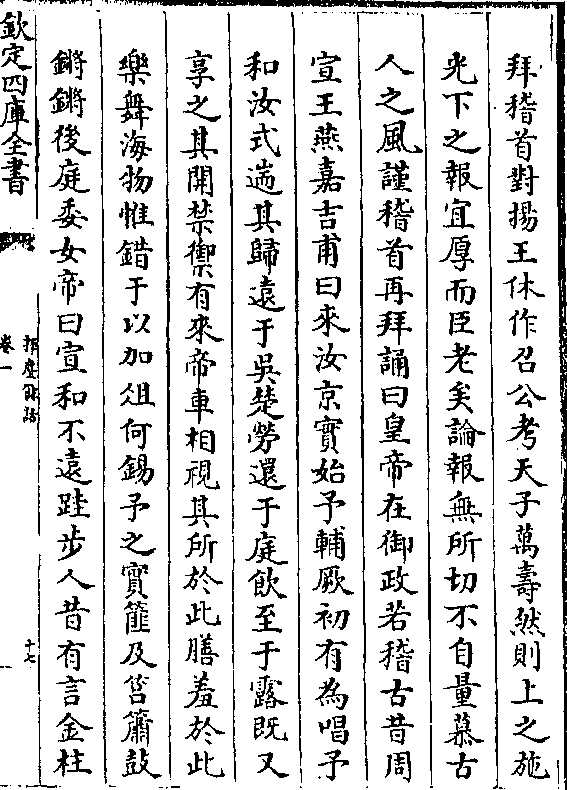 拜稽首對揚王休作召公考天子萬壽然則上之施
光下之報宜厚而臣老矣論報無所切不自量慕古
人之風謹稽首再拜誦曰皇帝在御政若稽古昔周
宣王燕嘉吉甫曰來汝京實始予輔厥初有為唱予
和汝式遄其歸遠于吳楚勞還于庭飲至于露既又
享之其開禁禦有來帝車相視其所於此膳羞於此
樂舞海物惟錯于以加俎何錫予之實籠及筥簫鼓
鏘鏘後庭委女帝曰宣和不遠跬步人昔有言金柱
欽定四庫全書
揮麈餘話
卷一
十七